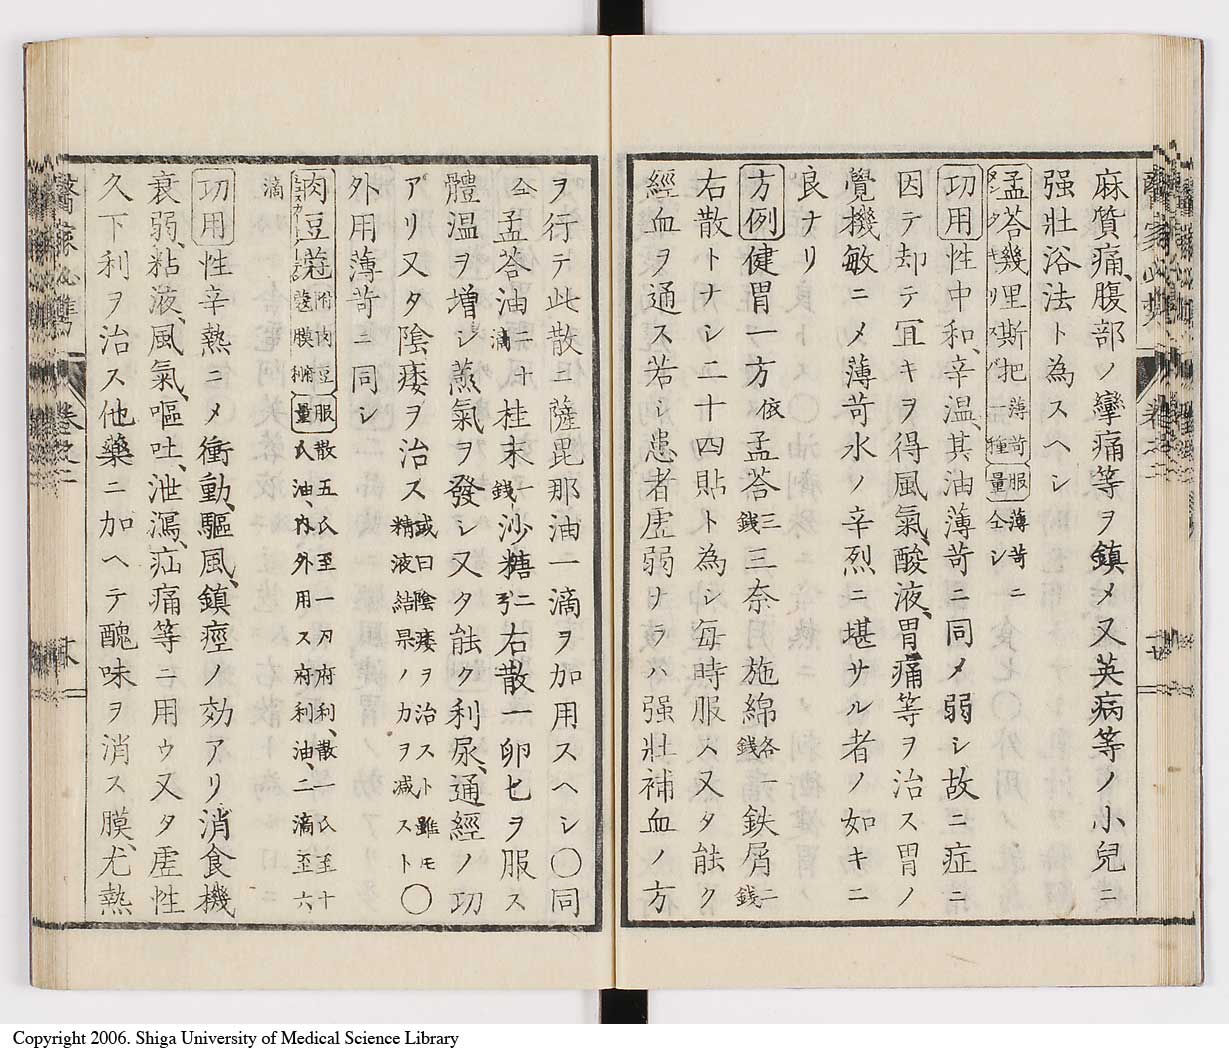 麻質痛、腹部ノ攣痛等ヲ鎮メ又英病等ノ小兒ニ
强壯浴法ト為スヘシ
孟荅幾里斯把 薄苛種 服量 薄苛ニ仝シ
功用 性中和、辛温、其油薄苛ニ同メ弱シ故ニ症ニ
因テ却テ冝キヲ得風氣、酸液、胃痛等ヲ治ス胃ノ
覺機敏ニメ薄苛水ノ辛烈ニ堪サル者ノ如キニ
良ナリ
方例 健胃一方 依 孟荅 三錢 三奈 施綿 各一錢 鉄屑 二錢
右散トナシ二十四貼ト為シ毎時服ス又タ能ク
經血ヲ通ス若シ患者虚弱ナラハ强壯補血ノ方
ヲ行テ此散ニ薩毘那油一滴ヲ加用スヘシ〇同
仝 孟荅油 二十滴 桂末 一錢 沙糖 二 右散一卵匕ヲ服ス
體温ヲ増シ蒸氣ヲ發シ又タ能ク利尿、通經ノ功
アリ又タ陰痿ヲ治ス 或曰陰痿ヲ治スト雖モ精液結果ノ力ヲ減スト 〇
外用薄苛ニ同シ
肉豆蔲 附肉豆蔲膜 服量 散五氏至一刃府利、散一氏至十氏油、内外用ス府利油、二滴至六
滴
功用 性辛熱ニメ衝動、驅風、鎮痙ノ効アリ消食機
衰弱、粘液、風氣、嘔吐、泄瀉、疝痛等ニ用ウ又タ虚性
久下利ヲ治ス他藥ニ加ヘテ醜味ヲ消ス膜、尤熱
卷之二
Copyright 2006. Shiga University of Medical Science Library